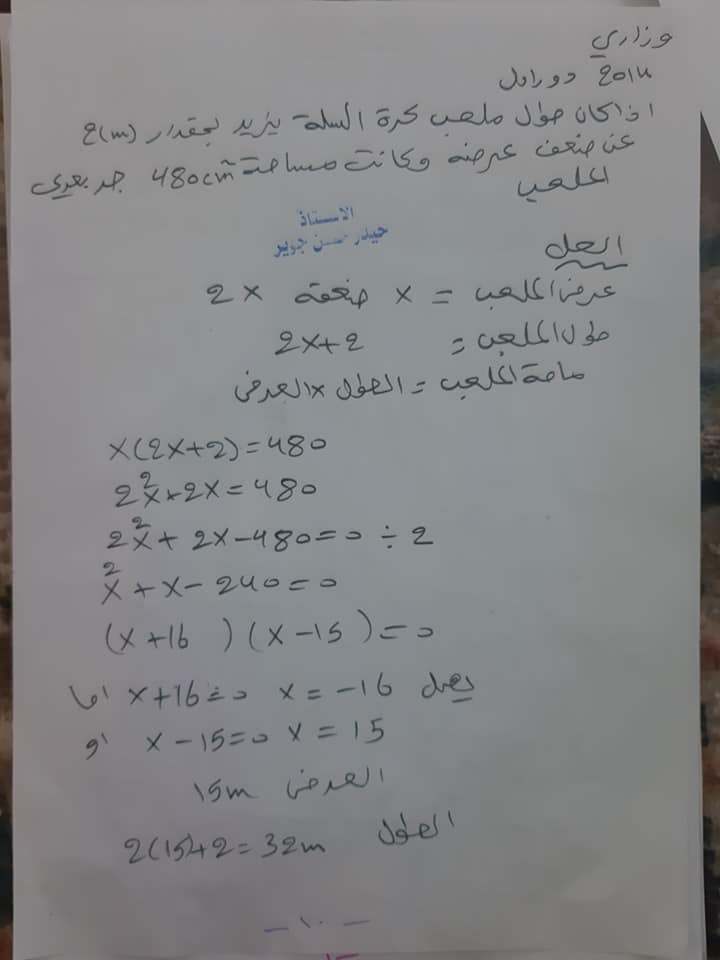 وزاري
٢٠١٨ دور اول
اذا كان طول ملعب كرة السلة يزيد بمقدار 2(m)
عن ضعف عرضه وكانت مساحة 480cm² جد بعدي
الملعب
الاستاذ
حيدر حسن جوير
الحل
عرض الملعب = x ضعفه 2x
طول الملعب = 2x+2
مساحة الملعب = الطول × العرض
x(2x+2)=480
2x²+2x=480
2x²+2x-480=0 ÷ 2
x²+x-240=0
(x+16)(x-15)=0
اما x+16=0 x=-16 يهمل
او x-15=0 x=15
العرض 15m
الطول 2(15)+2=32m
- ١٠ -